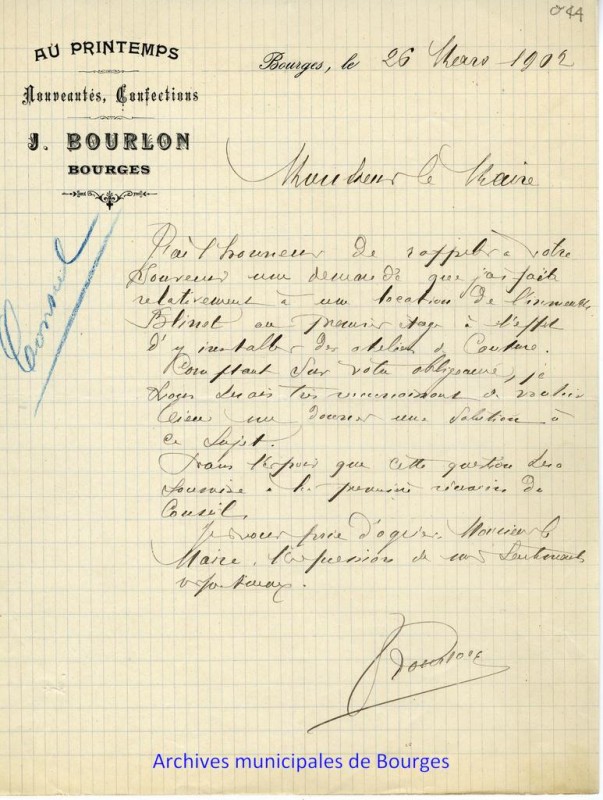 044
AU PRINTEMPS
Nouveautés, Confections
J. BOURLON
BOURGES
Bourges, le 26 Mars 1902
Monsieur le Maire
Conseil
J'ai l'honneur de rappeler à votre
souvenir une demande que j'ai faite
relativement à une location de l'immeuble
Blinet au premier étage à l'effet
d'y installer des ateliers de Couture.
Comptant sur votre obligeance, je
vous serais très reconnaissant de vouloir
bien me donner une solution à
ce sujet.
Dans l'espoir que cette question sera
soumise à la première réunion du
Conseil,
Je vous prie d'agréer, Monsieur le
Maire, l'expression de mes sentiments
respectueux.
J Bourlon
Archives municipales de Bourges